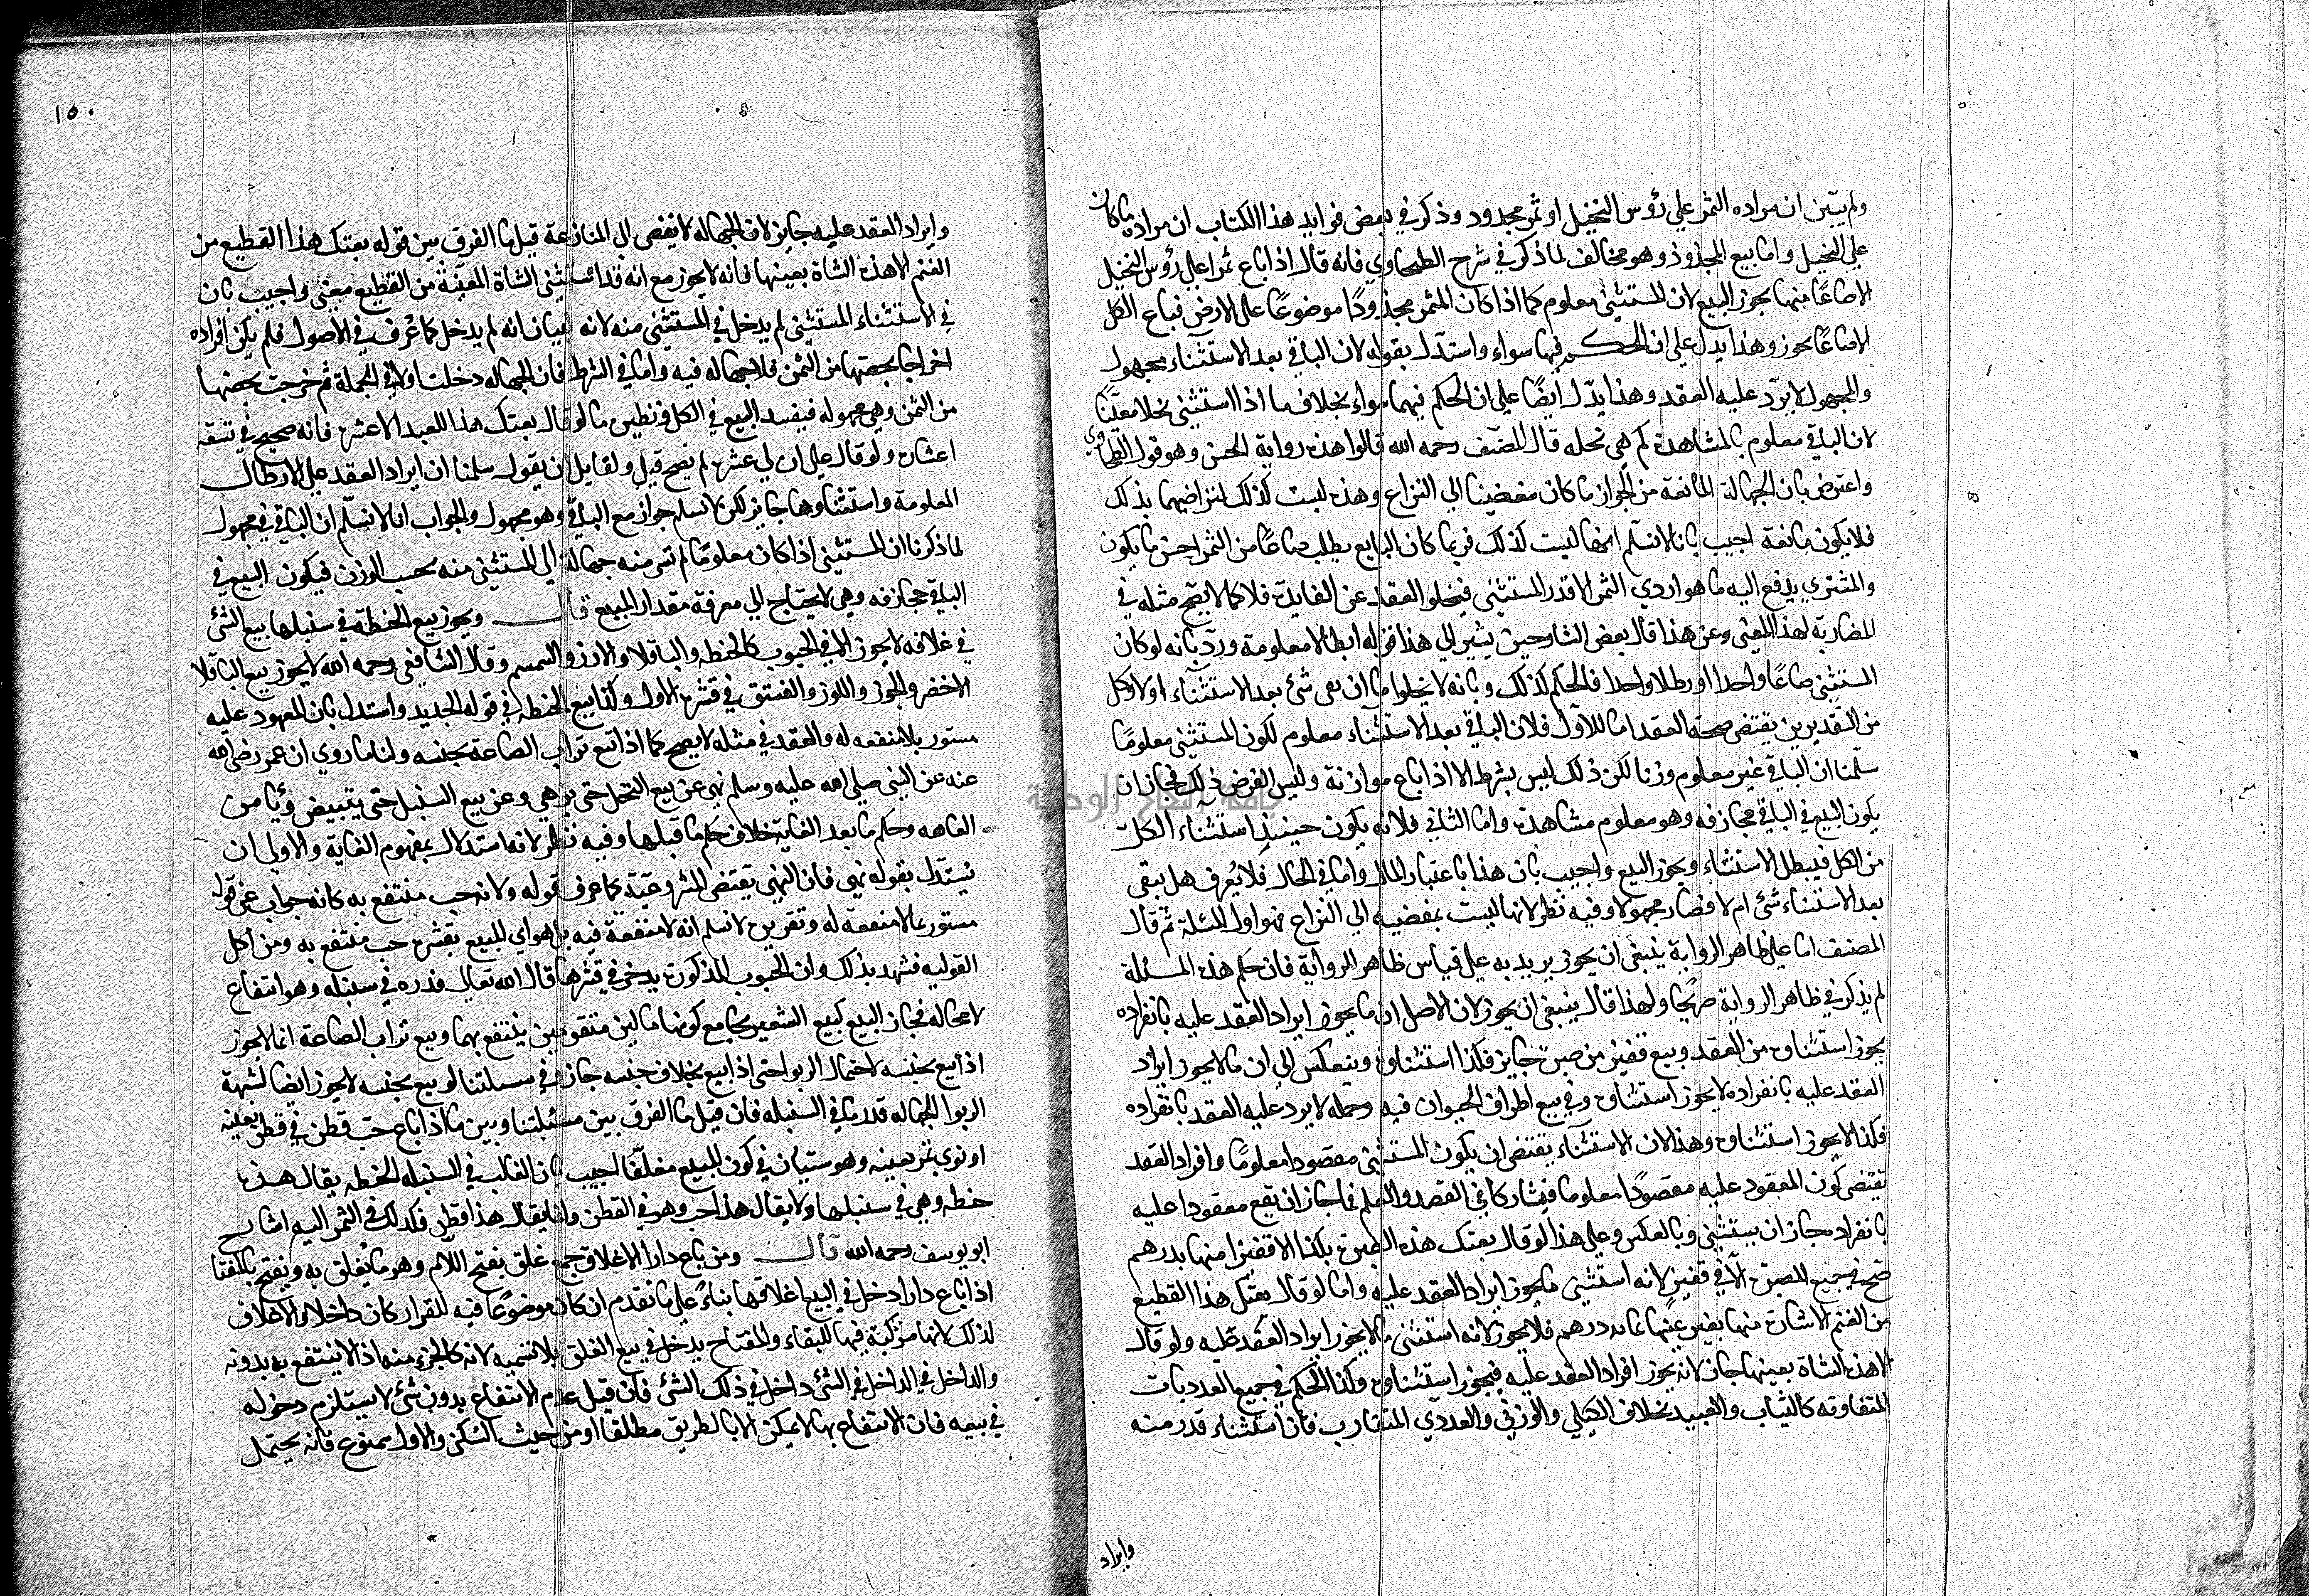 ولم يبين ان مراده الثمر علي رؤس النخيل او ثمر مجدود وذكر في بعض فوايد هذا الكتاب ان مراده ما كان
علي النخيل واما بيع المجذوذ وهو مخالف لما ذكر في شرح الطحاوي فانه قال اذا باع ثمرا علي رؤس النخيل
الا صاعًا منها يجوز البيع لان المستثني معلوم كما اذا كان الثمر مجذوذًا موضوعًا علي الارض فباع الكل
الا صاعًا يجوز وهذا يدل علي ان الحكم فيها سواء واستدل بقوله لان الباقي بعد الاستثناء مجهول
والمجهول لا يرد عليه العقد وهذا يدل ايضًا علي ان الحكم فيهما سواء بخلاف ما اذا استثني نخلا معينًا
لان الباقي معلوم بالمشاهدة كم هي نخله قال المصنف رحمه الله قالوا هذه رواية الحسن وهو قول الطحاوي
واعترض بان الجهالة المانعة من الجواز ما كان مفضيا الي النزاع وهذه ليست كذلك لتراضيهما بذلك
فلا يكون مانعة اجيب بانا لا نسلم انها ليست كذلك فربما كان البايع يطلب صاعًا من الثمر احسن ما يكون
والمشتري يدفع اليه ما هو اردي الثمر الا قدر المستثني فيخلو العقد عن الفايدة فلا كما لا يصح مثله في
المضاربة لهذا المعني وعن هذا قال بعض الشارحين يشير الي هذا قوله ارطالا معلومة ورد بانه لو كان
المستثني صاعًا واحدا او رطلا واحدا فالحكم كذلك وبانه لا يخلوا ما ان بقي شئ بعد الاستثناء اولا وكل
من التقديرين يقتضي صحة العقد اما للاول فلان الباقي بعد الاستثناء معلوم لكون المستثني معلومًا
سلمنا ان الباقي غير معلوم وزنا لكن ذلك ليس بشرط الا اذا باع موازنة وليس الفرض ذلك فجاز ان
يكون البيع في الباقي مجازفه وهو معلوم مشاهدة واما الثاني فلانه يكون حينيذ استثناء الكل
من الكل فيبطل الاستثناء ويجوز البيع واجيب بان هذا باعتبار المال واما في الحال فلا يعرف هل يبقي
بعد الاستثناء شئ ام لا فصار مجهولا وفيه نظر لانها ليست بمفضيه الي النزاع فهو اول المسئلة ثم قال
المصنف اما علي ظاهر الرواية ينبغي ان يجوز يريد به علي قياس ظاهر الرواية فان حكم هذه المسئلة
لم يذكر في ظاهر الرواية صريحًا ولهذا قال ينبغي ان يجوز لان الاصل ان ما يجوز ايراد العقد عليه بانفراده
يجوز استثناوه من العقد وبيع قفيز من صبرة جايز فكذا استثناوه وينعكس الي ان ما لا يجوز ايراد
العقد عليه بانفراده لا يجوز استثناوه وفي بيع اطراف الحيوان فيه وحمله لا يرد عليه العقد بانفراده
فكذا لا يجوز استثناوه وهذا لان الاستثناء يقتضي ان يكون المستثني مقصودا معلومًا وافراد العقد
تقتضي كون المعقود عليه مقصودًا معلوما فيتشاركا في القصد والعلم فما جاز ان يقع معقودا عليه
بانفراده جاز ان يستثني وبالعكس وعلي هذا لو قال بعتك هذه الصبرة بكذا الا قفيزا منها بدرهم
صح في جميع الصبرة الا في قفيز لانه استثني ما يجوز ايراد العقد عليه واما لو قال بعتك هذا القطيع
من الغنم الا شاة منها بغير عينها بماية درهم فلا يجوز لانه استثني ما لا يجوز ايراد العقد عليه ولو قال
الا هذه الشاة بعينها جاز لانه يجوز افراد العقد عليه فيجوز استثناوه وكذا الحكم في جميع العدديات
المتفاوته كالثياب والعبيد بخلاف الكيلي والوزني والعددي المتقارب فان استثناء قدر منه
وايراد
١٥٠
وايراد العقد عليه جايز لان الجهاله لا يفضي الي المنازعة قيل ما الفرق بين قوله بعتك هذا القطيع من
الغنم الا هذه الشاة بعينها فانه لا يجوز مع انه قد استثني الشاة المعينة من القطيع معني واجيب بان
في الاستثناء المستثني لم يدخل في المستثني منه لانه لبيان انه لم يدخل كما عُرف في الاصول فلم يكن افراده
اخراجا بحصتها من الثمن فلا جهاله فيه واما في الشرط فان الجهاله دخلت اولا في الجملة ثم خرجت بحصتها
من الثمن وهي مجهوله فيفسد البيع في الكل فنظير ما لو قال بعتك هذا العبد الا عشره فانه صحيح في تسعة
اعشاره ولو قال علي ان لي عشره لم يصح قيل ولقايل ان يقول سلمنا ان ايراد العقد علي الارطال
المعلومة واستثناوها جايز لكن لا نسلم جواز مع الباقي وهو مجهول والجواب انا لا نسلم ان الباقي في مجهول
لما ذكرنا ان المستثني اذا كان معلومًا لم تسر منه جهالة الي المستثني منه بحسب الوزن فيكون البيع في
الباقي مجازفه وهي لا يحتاج الي معرفة مقدار المبيع قال ويجوز بيع الحنطة في سنبلها بيع الشئ
في غلافه لا يجوز الا في الحبوب كالحنطه والباقلا والارز والسمسم وقال الشافعي رحمه الله لا يجوز بيع الباقلا
الاخضر والجوز واللوز والفستق في قشره الاول وكذا بيع الحنطه في قوله الجديد واستدل بان المعهود عليه
مستور بلا منفعه له والعقد في مثله لا يصح كما اذا ابتع تراب الصاعة بجنسه ولنا ما روي ان عمر رضي الله
عنه عن النبي صلي الله عليه وسلم نهي عن بيع النخل حتي يزهي وعن بيع السنبل حتي يتبيض ويأمن
العاهه وحكم ما بعد الغاية خلاف حكم ما قبلها وفيه نظر لانه استدلال بمفهوم الغاية والاولي ان
نستدل بقوله نهي فان النهي يقتضي المشروعية كما عرف قوله ولانه حب منتفع به كانه جواب عن قوله
مستور بما لا منفعه له وتقريره لا نسلم انه لا منفعة فيه بل هو اي المبيع بقشره حب منتفع به ومن اكل
القوليه فشهد بذلك وان الحبوب المذكوره يدخر في قشرها قال الله تعالي فذروه في سنبله وهو انتفاع
لا محاله فجاز البيع كبيع الشعير بجامع كونهما مالين متقومين ينتفع بهما وبيع تراب الصاعة انما لا يجوز
اذا بيع بجنسه لاحتمال الربوا حتي اذا بيع بخلاف جنسه جاز وفي مسئلتنا لو بيع بجنسه لا يجوز ايضا لشبهة
الربوا لجهاله قدر ما في السنبله فان قيل ما الفرق بين مسئلتنا وبين ما اذا باع حب قطن في قطن بعينه
او نوي تمر بعينه وهو سيان في كون المبيع مغلفًا اجيب بان الغالب في السنبله الحنطه يقال هذه
حنطه وهي في سنبلها ولا يقال هذا حب وهو في القطن وانما يقال هذا قطن فكذلك في الثمر اليه اشار
ابو يوسف رحمه الله قال ومن باع دارا الاغلاق جمع غلق بفتح اللام وهو ما يُغلق به ويفتح بالمفتاح
اذا باع دارا دخل في البيع اغلاقها بناءً علي ما تقدم ان كان موضوعًا فيه للقرار كان داخلا والاغلاق
لذلك لانها مركبة فيها للبقاء والمفتاح يدخل في بيع الغلق بلا تسميه لانه كالجزء منه اذ لا ينتفع به بدونه
والداخل في الداخل في الشئ داخل في ذلك الشئ فان قيل عدم الانتفاع بدون شئ لا يستلزم دخوله
في بيعه فان الانتفاع بها لا يمكن الا بالطريق مطلقا او من حيث السكني والاول ممنوع فانه يحتمل